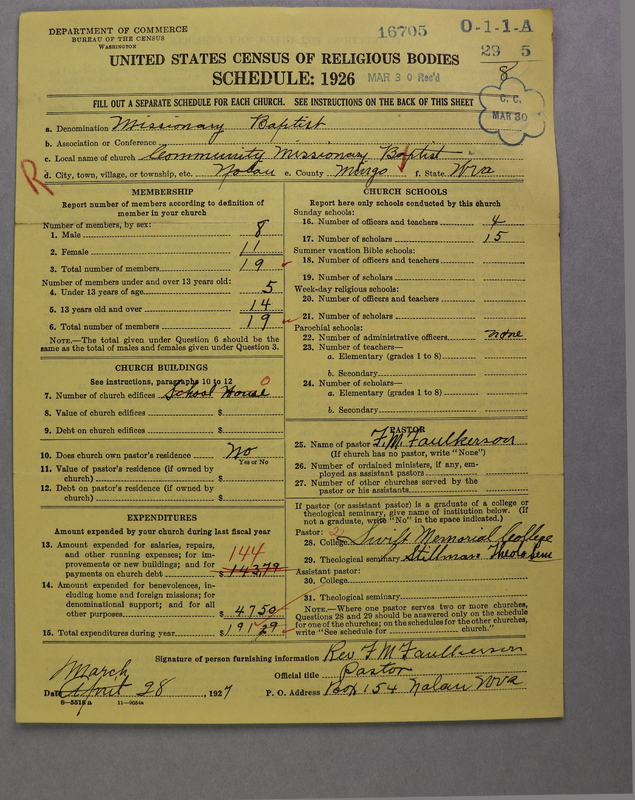 DEPARTMENT OF COMMERCE
BUREAU OF THE CENSUS
WASHINGTON
16705
0-1-1-A
29 5
8
UNITED STATES CENSUS OF RELIGIOUS BODIES
SCHEDULE: 1926
MAR 30 Rec'd
C. C.
MAR 30
FILL OUT A SEPARATE SCHEDULE FOR EACH CHURCH. SEE INSTRUCTIONS ON THE BACK OF THIS SHEET
a. Denomination Missionary Baptist
b. Association or Conference
c. Local name of church Community Missionary Baptist
R
d. City, town, village, or township, etc. Nolan e. County Mingo f. State Wva
MEMBERSHIP
Report number of members according to definition of
member in your church
Number of members, by sex:
1. Male 8
2. Female 11
3. Total number of members 19
Number of members under and over 13 years old:
4. Under 13 years of age 5
5. 13 years old and over 14
6. Total number of members 19
NOTE.—The total given under Question 6 should be the
same as the total of males and females given under Question 3.
CHURCH BUILDINGS
See instructions, paragraphs 10 to 12
7. Number of church edifices School House 0
8. Value of church edifices $
9. Debt on church edifices $
10. Does church own pastor's residence? No
Yes or No
11. Value of pastor's residence (if owned by
church) $
12. Debt on pastor's residence (if owned by
church) $
EXPENDITURES
Amount expended by your church during last fiscal year
13. Amount expended for salaries, repairs,
and other running expenses; for im-
provements or new buildings; and for
payments on church debt $ 143.79
144
14. Amount expended for benevolences, in-
cluding home and foreign missions; for
denominational support; and for all
other purposes $ 47.50
15. Total expenditures during year $ 191.29
CHURCH SCHOOLS
Report here only schools conducted by this church
Sunday schools:
16. Number of officers and teachers 4
17. Number of scholars 15
Summer vacation Bible schools:
18. Number of officers and teachers
19. Number of scholars
Week-day religious schools:
20. Number of officers and teachers
21. Number of scholars
Parochial schools:
22. Number of administrative officers none
23. Number of teachers—
a. Elementary (grades 1 to 8)
b. Secondary
24. Number of scholars—
a. Elementary (grades 1 to 8)
b. Secondary
PASTOR
25. Name of pastor F.M. Faulkerson
(If church has no pastor, write "None")
26. Number of ordained ministers, if any, em-
ployed as assistant pastors
27. Number of other churches served by the
pastor or his assistants
If pastor (or assistant pastor) is a graduate of a college or
theological seminary, give name of institution below. (If
not a graduate, write "No" in the space indicated.)
Pastor:
28. College 2 Swift Memorial College
29. Theological seminary Stillman
Assistant pastor:
30. College
31. Theological seminary
NOTE.—Where one pastor serves two or more churches,
Questions 28 and 29 should be answered only on the schedule
for one of the churches; on the schedules for the other churches,
write "See schedule for church."
Signature of person furnishing information Rev F M Faulkerson
Official title Pastor
March
Date April 28, 1927
P. O. Address Box 154 Nolan Wva
8—5518 a 11—9084a